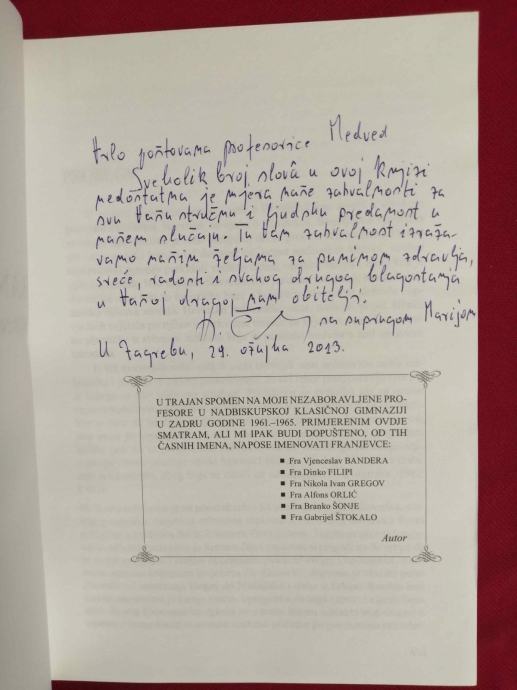 Vrlo poštovana profesorice Medved
Sveholik broj slovâ u ovoj knjizi
nedostatna je mjera naše zahvalnosti za
svu Vašu stručnu i ljudsku predanost u
našem slučaju. Tu Vam zahvalnost izraža-
vamo našim željama za punimom zdravlja,
sreće, radosti i svakog drugog blagostanja
u Vašoj dragoj nam obitelji.
sa suprugom Marijom
U Zagrebu, 29. ožujka 2013.
U TRAJAN SPOMEN NA MOJE NEZABORAVLJENE PRO-
FESORE U NADBISKUPSKOJ KLASIČNOJ GIMNAZIJI
U ZADRU GODINE 1961.–1965. PRIMJERENIM OVDJE
SMATRAM, ALI MI IPAK BUDI DOPUŠTENO, OD TIH
ČASNIH IMENA, NAPOSE IMENOVATI FRANJEVCE:
■ Fra Vjenceslav BANDERA
■ Fra Dinko FILIPI
■ Fra Nikola Ivan GREGOV
■ Fra Alfons ORLIĆ
■ Fra Branko ŠONJE
■ Fra Gabrijel ŠTOKALO
Autor